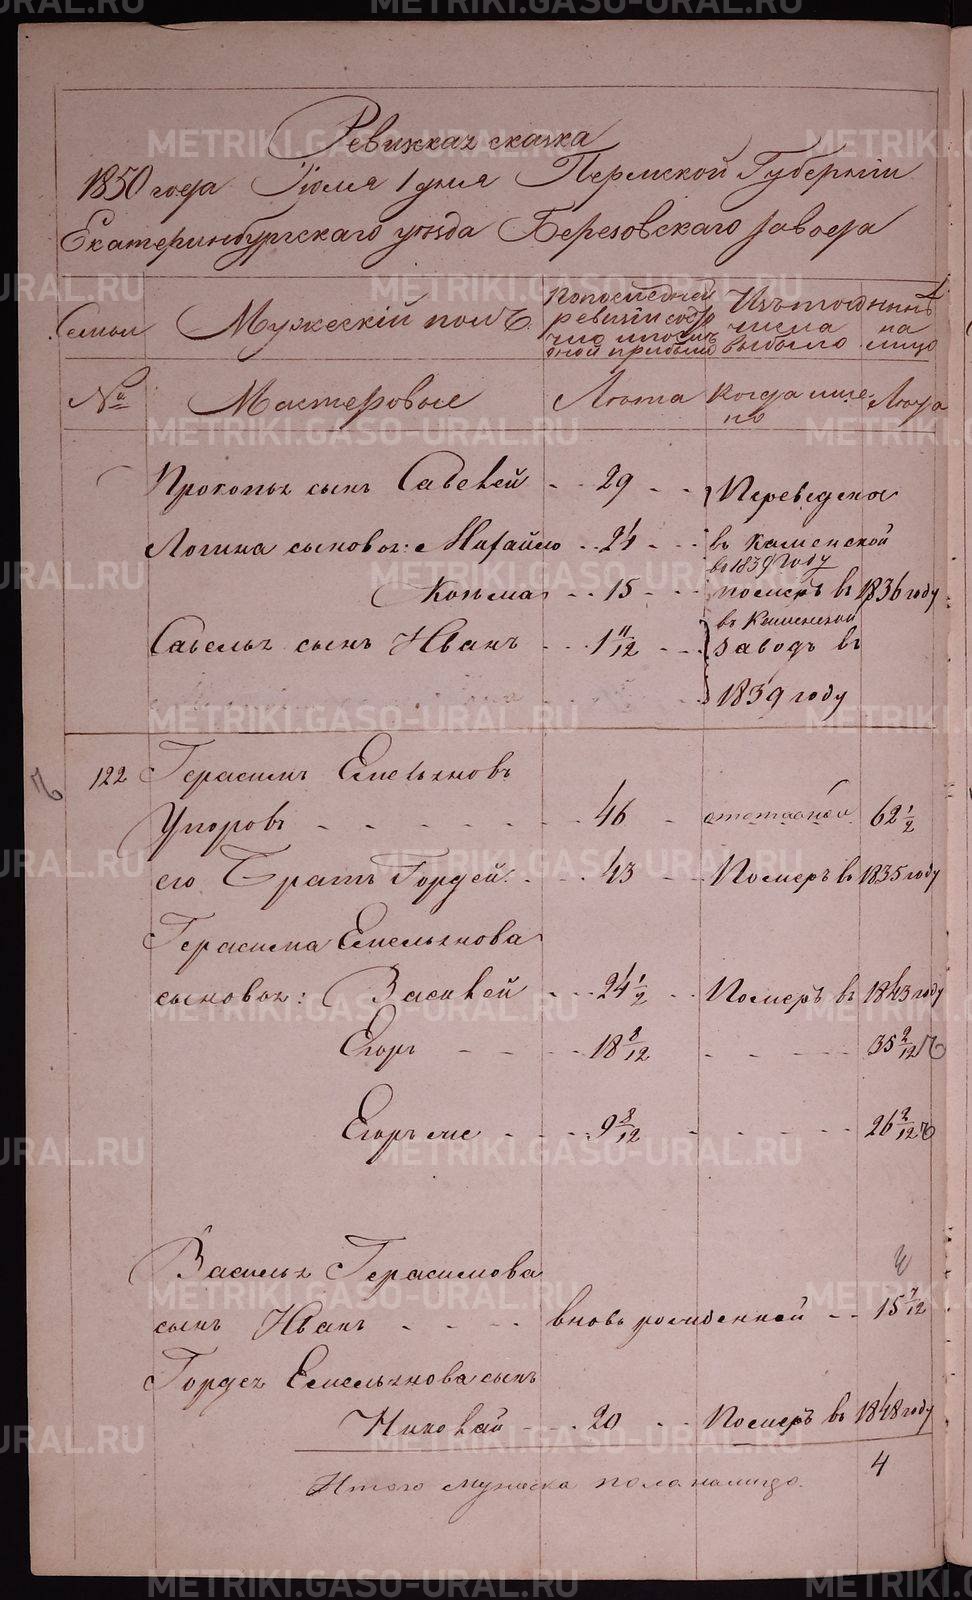 Ревижская сказка
1850 года Июля 1 дня Пермской Губернiи
Екатеринбургскаго уезда Березовскаго завода
Семьи
Мужескiй полъ.
По последней ревизiи состояло и после оной прибыло
Изъ того числа выбыло
Нынѣ на лицо
№
Мастеровые
Лѣта
Когда именно
Лѣта
Прокопья сынъ Савелей - - 29 - - Переведены
Логина сыновья: Михайло - - 24 - - въ Каменской
въ 1839 году
Козьма - - 15 - - померъ въ 1836 году
въ Каменской
Савелья сынъ Иванъ - - 1 11/12 - - заводъ въ
1839 году
122 Герасимъ Емельяновъ
Упоровъ - - - - 46 - отставной 62 1/2
его Братъ Гордей - - 43 - - Померъ въ 1835 году
Герасима Емельянова
сыновья: Василей - - 24 1/2 - - Померъ въ 1843 году
Егоръ - - - 18 8/12 - - - 35 2/12
Егоръ же - - - 9 8/12 - - - 26 2/12
Василья Герасимова
сынъ Иванъ - - - вновь рожденной - - 15 7/12
Гордея Емельянова сынъ
Николай - - 20 - - Померъ въ 1848 году
Итого мужеска пола налицо. 4
METRIKI.GASO-URAL.RU